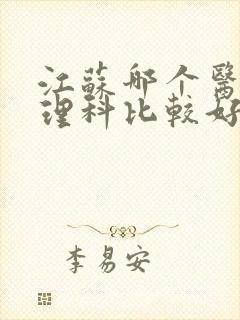 江蘇那个醫
理科比較好
李易安